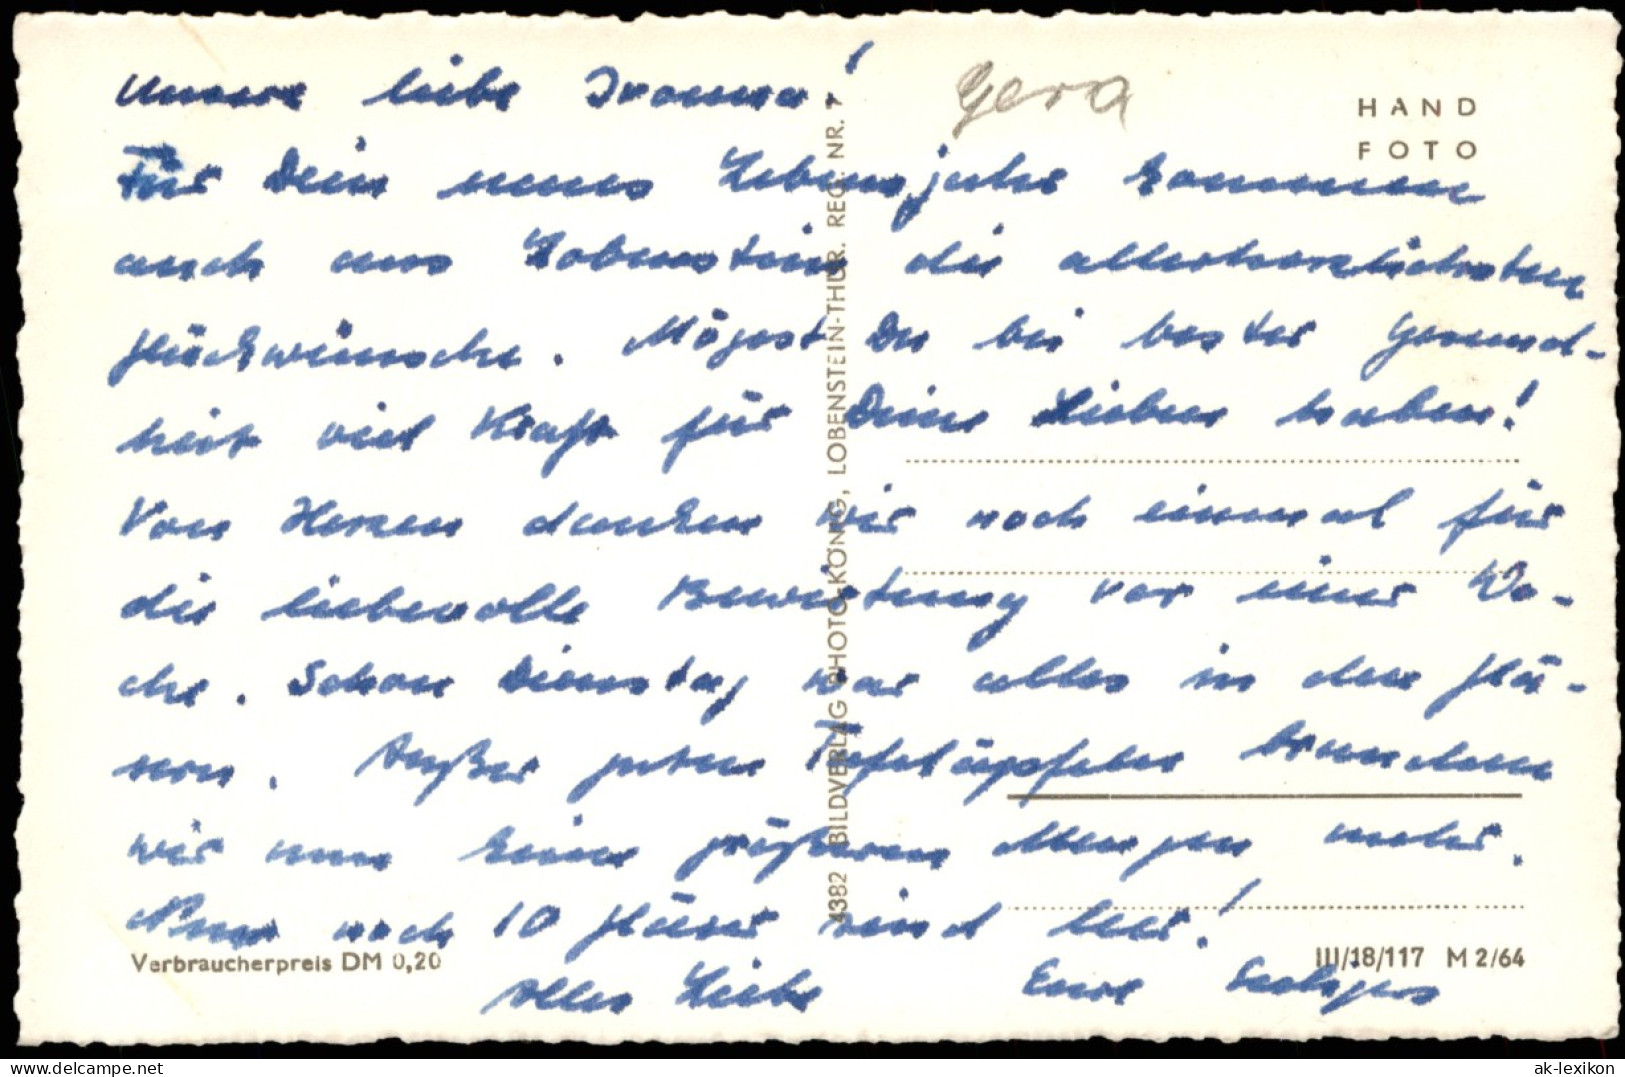 Unsere liebe Ivonna!
Gera
HAND
FOTO
Für Dein neues Lebensjahr kommen
auch aus Lobenstein die allerherzlichsten
Glückwünsche. Mögest Du bei bester Gesund-
heit viel Kraft für Deine Lieben haben!
Von Herzen danken wir noch einmal für
die liebevolle Bewirtung vor einer Wo-
che. Schon Dienstag war alles in den Glä-
sern. Außer guten Tafeläpfeln brauchen
wir nun keine größeren Mengen mehr.
Nur noch 10 Gläser sind leer!
Alles Liebe Eure
4382 BILDVERLAG PHOTO-KÖNIG, LOBENSTEIN-THÜR. REG. NR. 7
Verbraucherpreis DM 0,20
III/18/117 M 2/64
delcampe.net
ak-lexikon